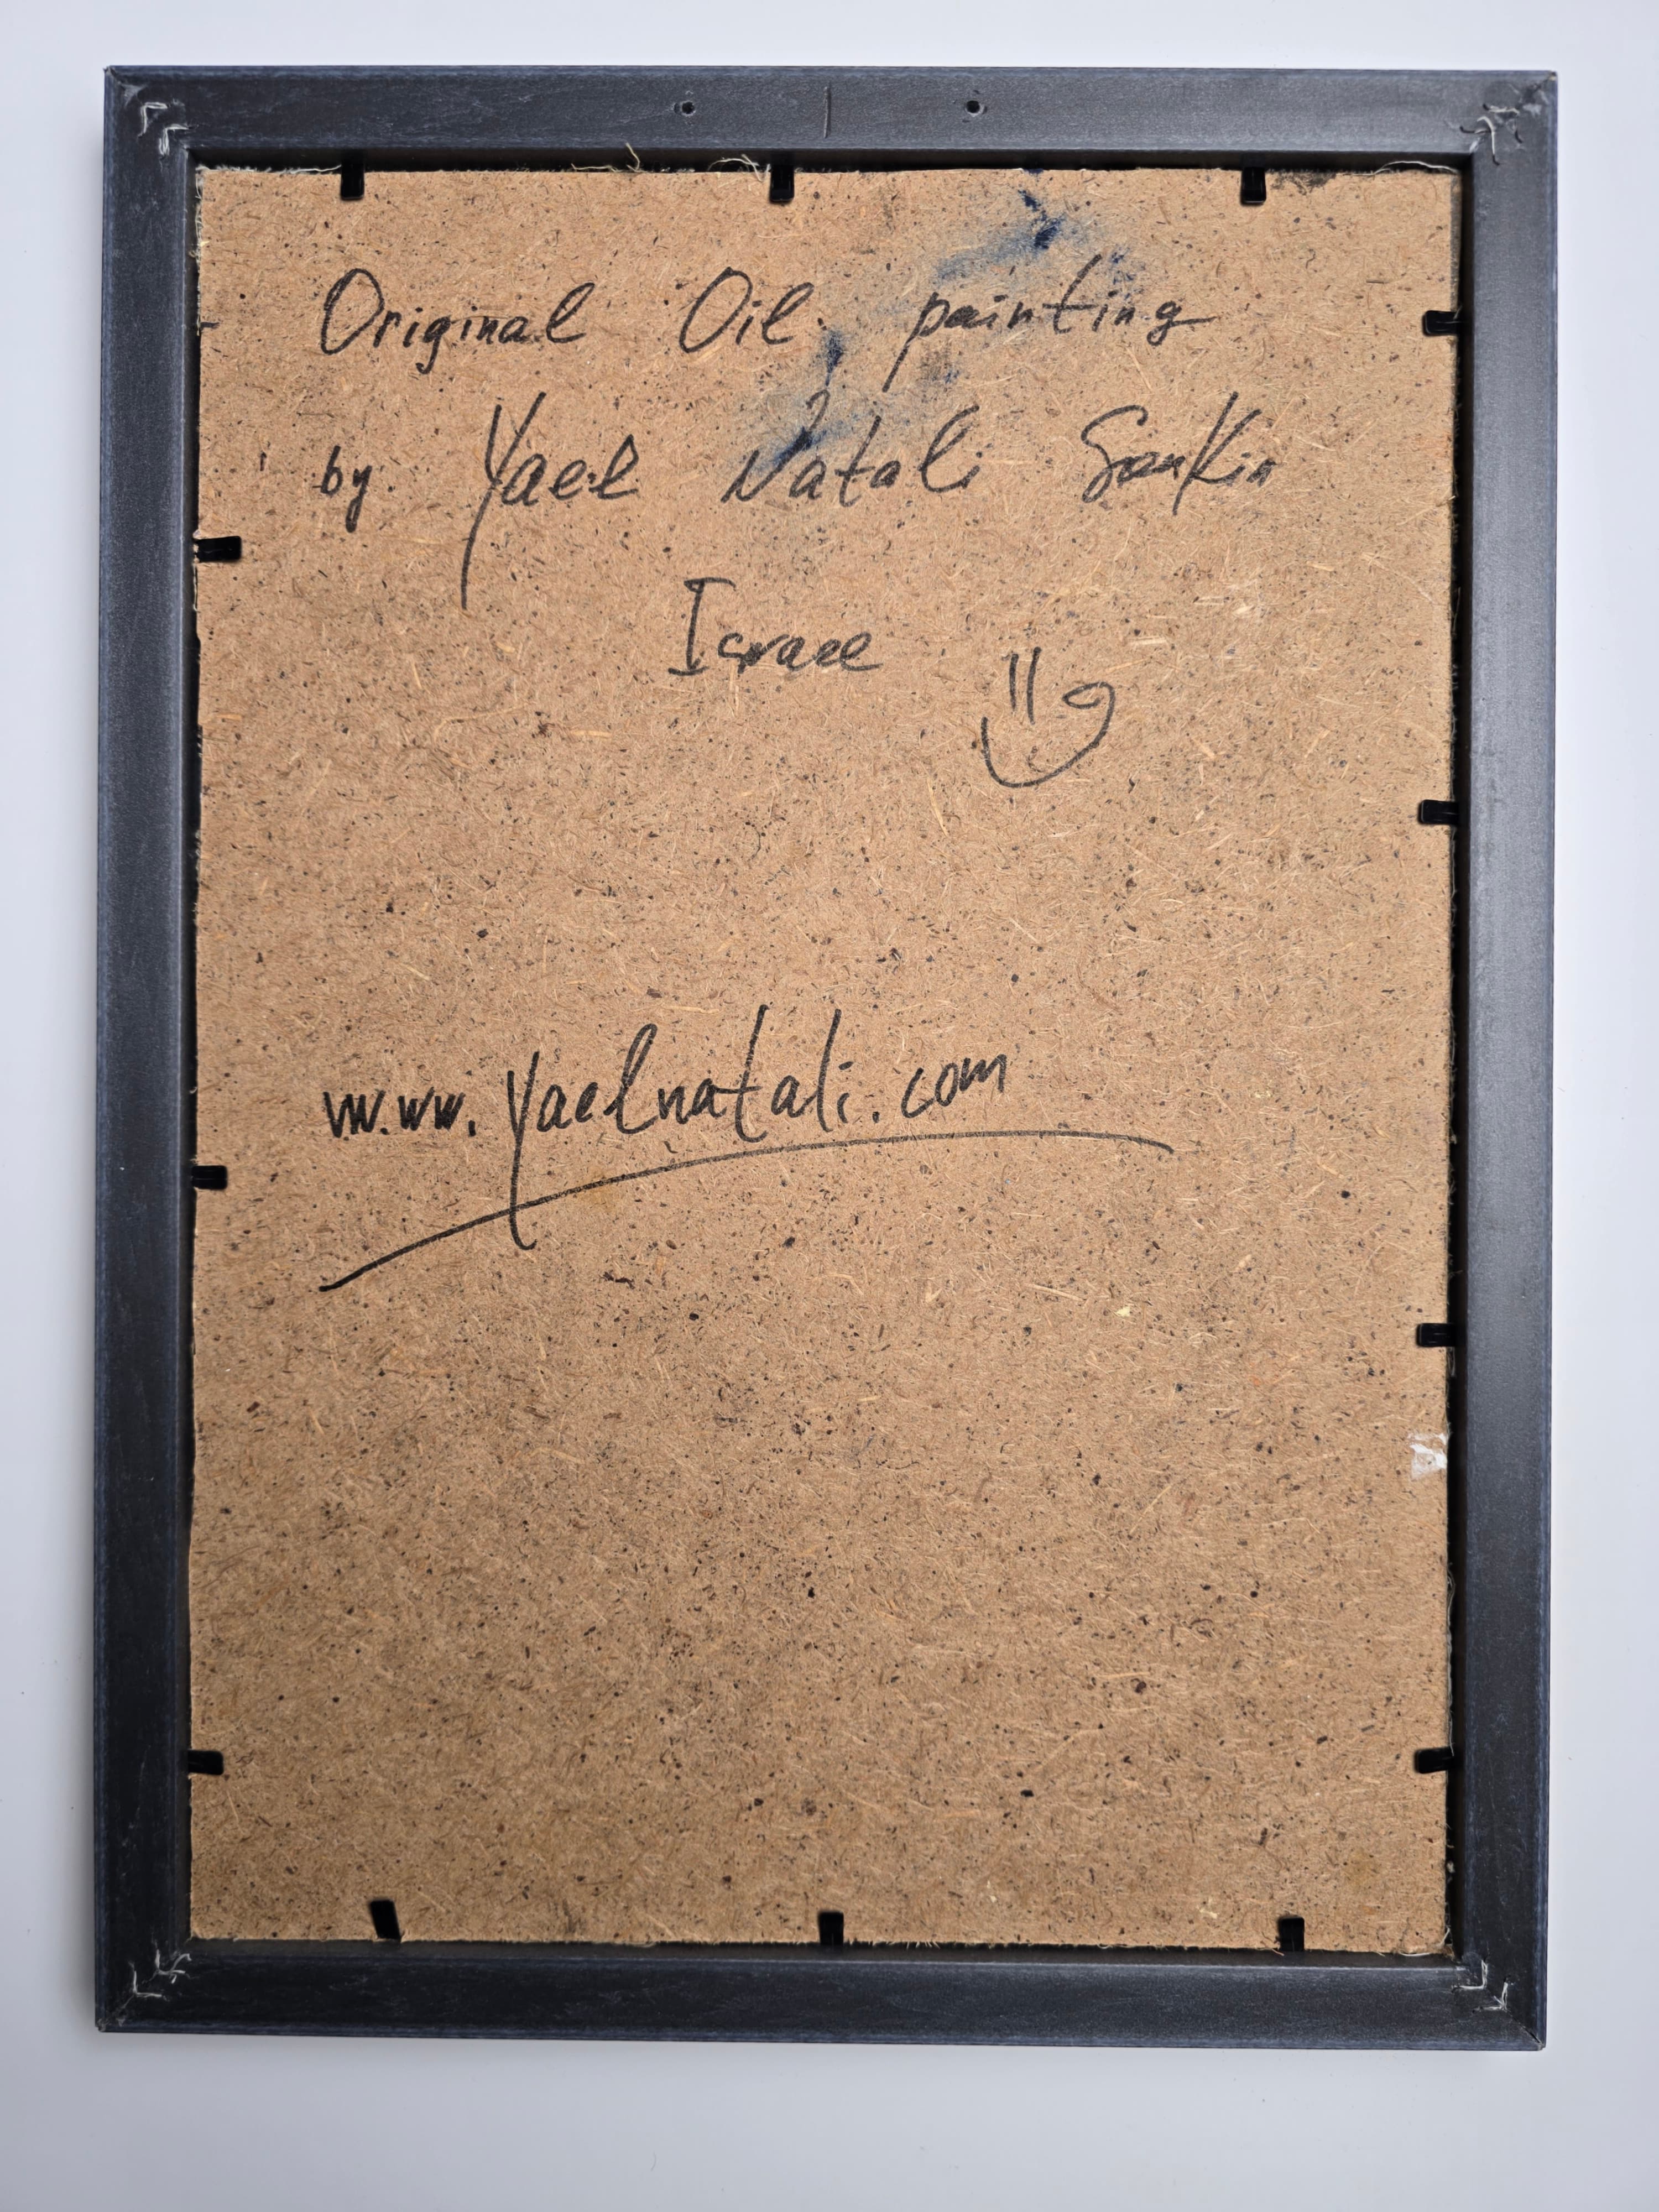 Original Oil painting
by Yael Natali Sankin
Israel
www.yaelnatali.com